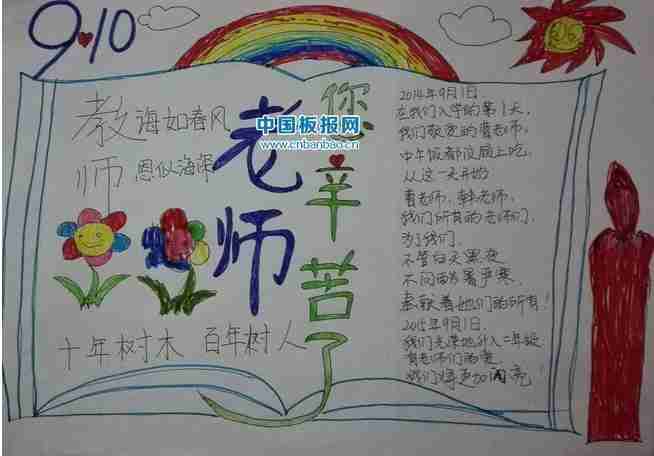 9·10
教诲如春风
师恩似海深
老师
您辛苦了
中国板报网
www.cnbanbao.cn
十年树木 百年树人
2014年9月1日.
在我们入学的第1天,
我们敬爱的曹老师,
中午饭都没顾上吃.
从这一天开始
曹老师,韩老师,
我们所有的老师们,
为了我们,
不管白天黑夜
不问酷暑严寒.
奉献着她们的所有!
2015年9月1日.
我们光荣地升入二年级
有老师们的爱
我们将更加闪亮!